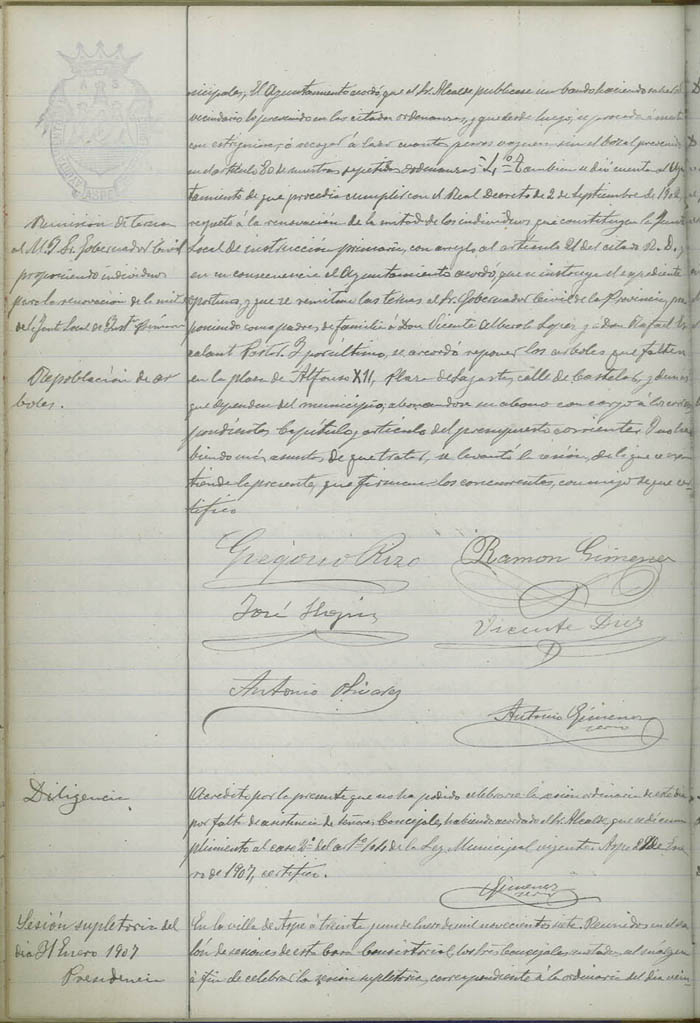 nicipales, El Ayuntamiento acordó que el Sr. Alcalde publicase un bando haciendo saber al
vecindario lo prevenido en las citadas ordenanzas, y que desde luego, se proceda á
con estrignina, ó recoger á lazo cuantos perros vaguen sin el bozal prevenido
en el artículo 80 de nuestras repetidas ordenanzas. Tambien se dió cuenta al Ayun-
tamiento de que procedia cumplir con el Real Decreto de 2 de Septiembre de 1902
respeto á la renovación de la mitad de los individuos que constituyen la Junta
Local de instrucción primaria, con arreglo al articulo 21 del citado R. D. y
en su consecuencia el Ayuntamiento acordó que se instruya el espediente
oportuno, y que se remitan las ternas al Sr. Gobernador Civil de la Provincia, pro-
poniendo como padres de familia á Don Vicente Alberola Lopez y á Don Rafael
Y por último, se acordó reponer los arboles que falten
en la plaza de Alfonso XII, Plaza de Sagasta, calle de Castelar, y demas
que dependen del municipio, abonandose su abono con cargo á los corres-
pondientes Capítulo y articulo del presupuesto corriente. Y no ha-
biendo más asuntos de que tratar, se levantó la sesión, de la que se exa-
tiende la presente, que firman los concurrentes, conmigo de que cer-
tifico
Remisión de ternas
al M. I. Sr. Gobernador Civil
proponiendo individuos
para la renovacion de la mitad
de la Junta Local de Inst. Primaria
Repoblación de ar
boles.
Gregorio Rizo
Ramon Gimenez
José
Vicente Diez
Antonio Olivares
Antonio Gimenez
Diligencia
Acredito por la presente que no ha podido celebrarse la sesión ordinaria de este dia
por falta de asistencia de señores Concejales, habiendo acordado el Sr. Alcalde, que se dé cum-
plimiento al caso 2º del art.º 104 de la Ley Municipal vigente. Aspe de Ene
ro de 1907, certifico.
Gimenez
Sesión supletoria del
dia 31 Enero 1907
Presidencia
En la villa de Aspe á treinta y uno de Enero de mil novecientos siete. Reunidos en el sa-
lón de sesiones de esta Casa Consistorial, los Sres. Concejales anotados al márgen
á fin de celebrar la sesión supletoria, correspondiente á la ordinaria del dia vein-